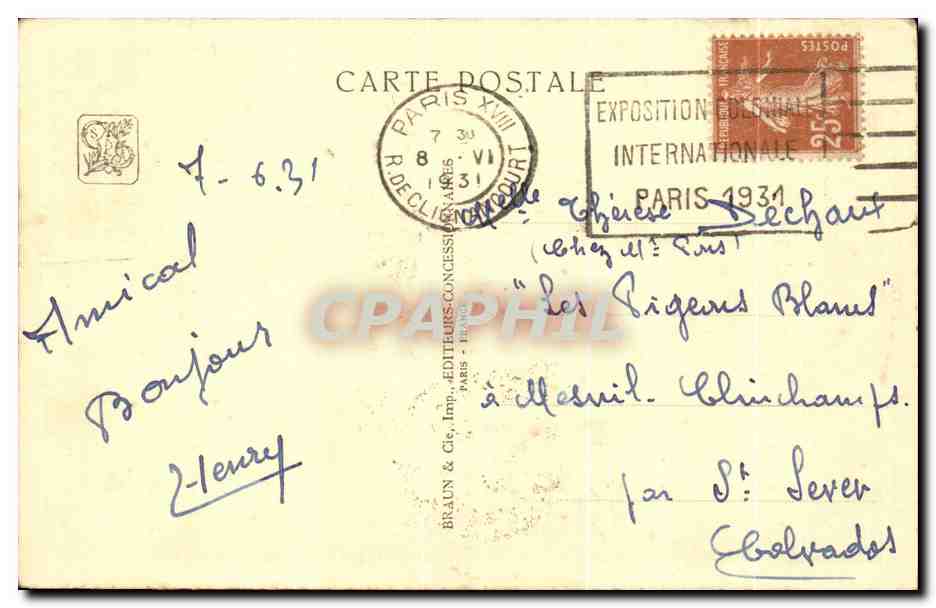 CARTE POSTALE
PARIS XVIII
7 30
8 VI
1931
R. DECLIGNANCOURT
EXPOSITION COLONIALE
INTERNATIONALE
PARIS 1931
REPUBLIQUE FRANÇAISE
POSTES
25
7-6.31
Amical
Bonjour
Henry
BRAUN & Cie, Imp., EDITEURS-CONCESSIONNAIRES
PARIS - FRANCE
Melle Thérèse Dechaux
(Chez Mr )
"Les Pigeons Blancs"
à Mesnil-Clinchamps.
par St. Sever
Calvados
CPAPHIL